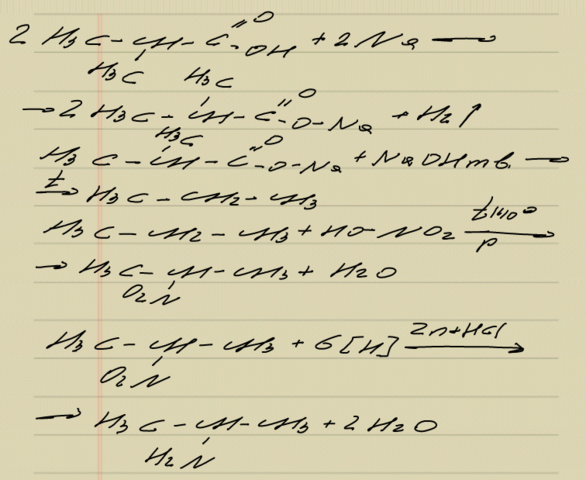 2 H₃C – CH – C =O – OH + 2 Na →
H₃C H₃C
→ 2 H₃C – CH – C =O – O – Na + H₂↑
H₃C
H₃C – CH – C =O – O – Na + NaOHтв. →
t→ H₃C – CH₂ – CH₃
H₃C – CH₂ – CH₃ + HO – NO₂ t140° p →
→ H₃C – CH – CH₃ + H₂O
O₂N
H₃C – CH – CH₃ + 6[H] Zn+HCl →
O₂N
→ H₃C – CH – CH₃ + 2H₂O
H₂N